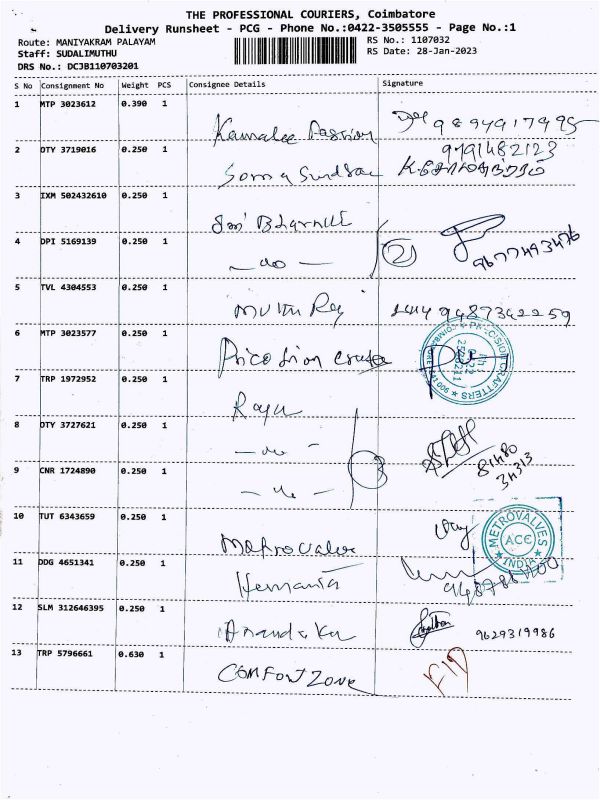 THE PROFESSIONAL COURIERS, Coimbatore
Delivery Runsheet - PCG - Phone No.:0422-3505555 - Page No.:1
Route: MANIYAKRAM PALAYAM
RS No.: 1107032
Staff: SUDALIMUTHU
RS Date: 28-Jan-2023
DRS No.: DCJB110703201
S No Consignment No Weight PCS Consignee Details Signature
1 MTP 3023612 0.390 1
9894917995
2 DTY 3719016 0.250 1
9791482123
3 IXM 502432610 0.250 1
4 DPI 5169139 0.250 1
- do - 2 9677493476
5 TVL 4304553 0.250 1
9487342259
6 MTP 3023577 0.250 1
PRECISION CRAFTERS
7 TRP 1972952 0.250 1
Raju
8 DTY 3727621 0.250 1
- do -
3
81480
34313
9 CNR 1724890 0.250 1
- do -
10 TUT 6343659 0.250 1
Metrovalve
METROVALVES
ACE
INDIA
11 DDG 4651341 0.250 1
Hemanta
12 SLM 312646395 0.250 1
9629319986
13 TRP 5796661 0.630 1
Comfort Zone